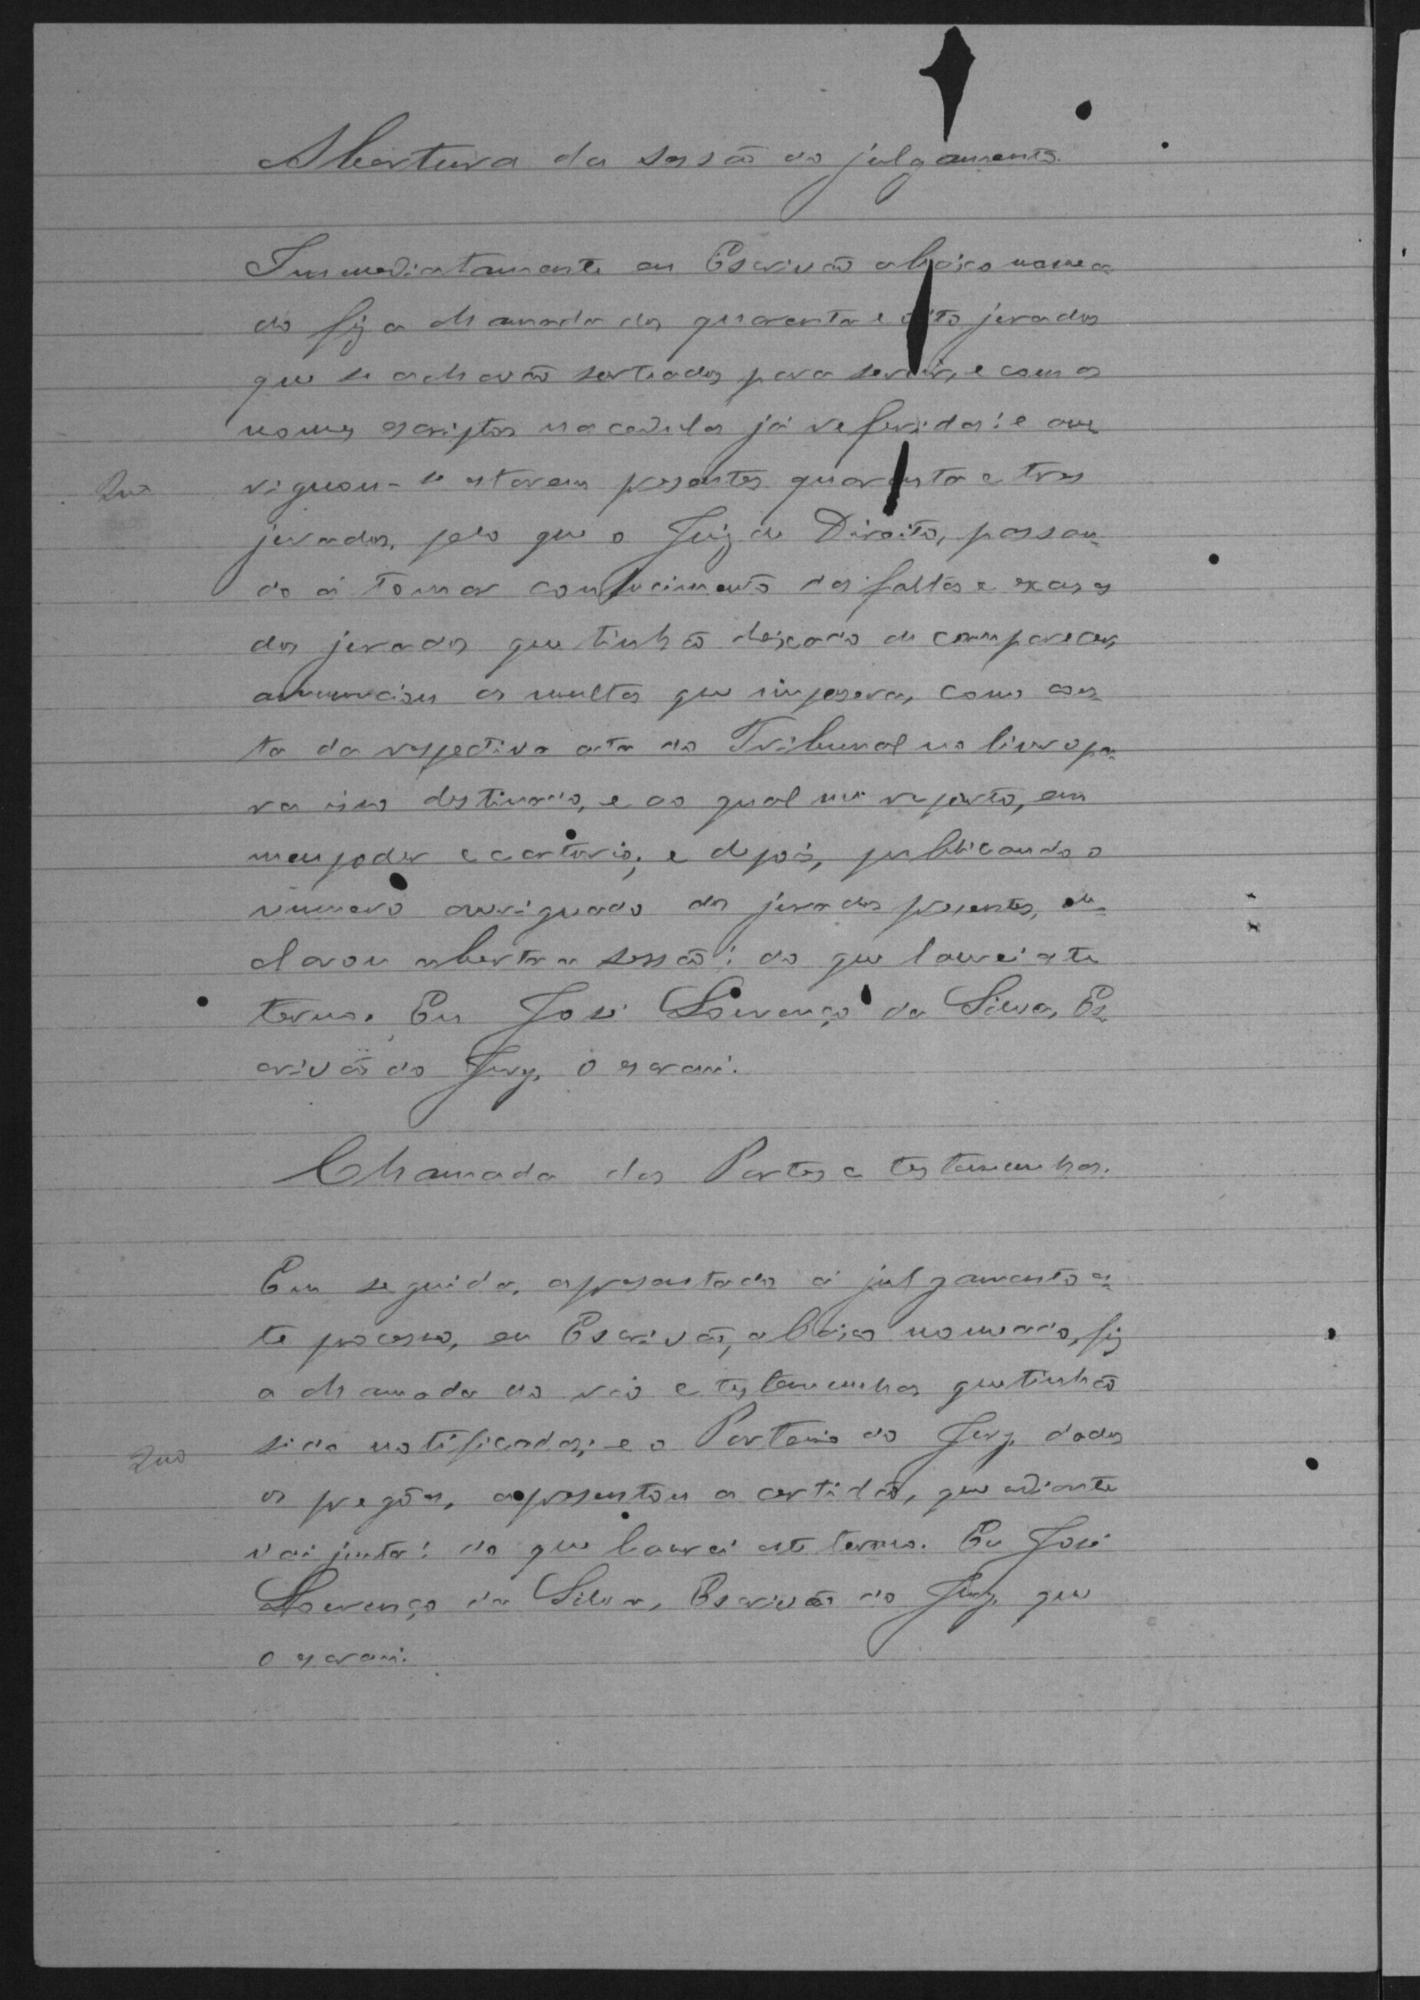 Abertura da sessão do julgamento.
Immediatamente eu Escrivão abaixo nomea-
do fiz a chamada dos quarenta e oito jurados
que se achavão sorteados para servir, e com os
nomes escriptos na cedulas já referidas: e ave-
riguou-se estarem presentes quarenta e tres
jurados, pelo que o Juiz de Direito, passan-
do á tomar conhecimento das faltas e excusas
dos jurados que tinhão deixado de comparecer,
annunciou as multas que impozera, como cons-
ta da respectiva acta do Tribunal no livro pa-
ra isso destinado, e ao qual me reporto, em
meu poder e cartorio; e depois, publicando o
numero averiguado dos jurados presentes, de-
clarou aberta a sessão: do que lavrei este
termo. Eu José Lourenço da Silva, Es-
crivão do Jury, o escrevi.
Chamada das Partes e testemunhas.
Em seguida, apresentado á julgamento es-
te processo, eu Escrivão, abaixo nomeado, fiz
a chamada do réo e testemunhas que tinhão
sido notificadas; e o Porteiro do Jury, dados
os pregões, apresentou a certidão, que adiante
vai junta: do que lavrei este termo. Eu José
Lourenço da Silva, Escrivão do Jury, que
o escrevi.